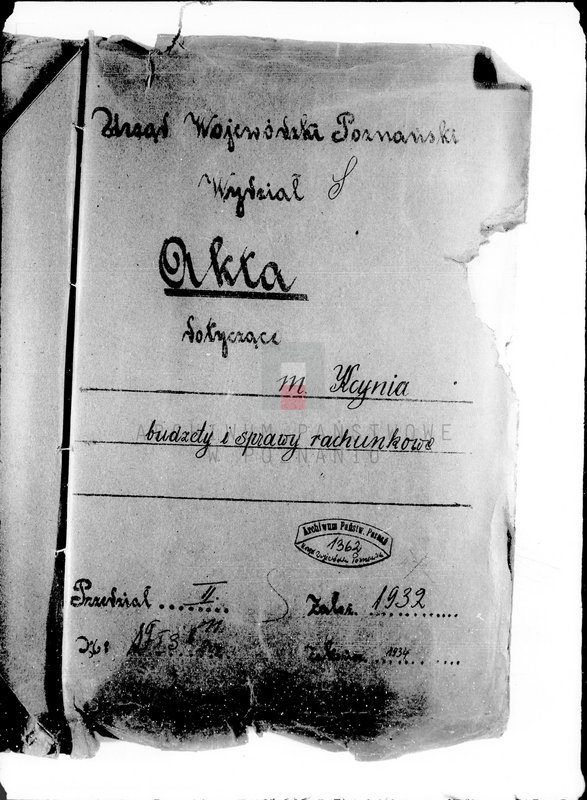 Urząd Wojewódzki Poznański
Wydział S
Akta
dotyczące
m. Kcynia
budżety i sprawy rachunkowe
ARCHIWUM PAŃSTWOWE
W POZNANIU
Archiwum Państw. Poznań
1362
Przedział II.
Założ. 1932
1934